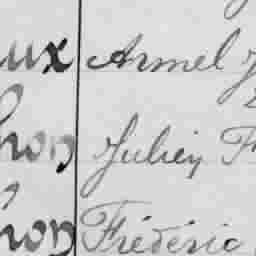 ux Armel J
hon Julien F
hon Frédéric